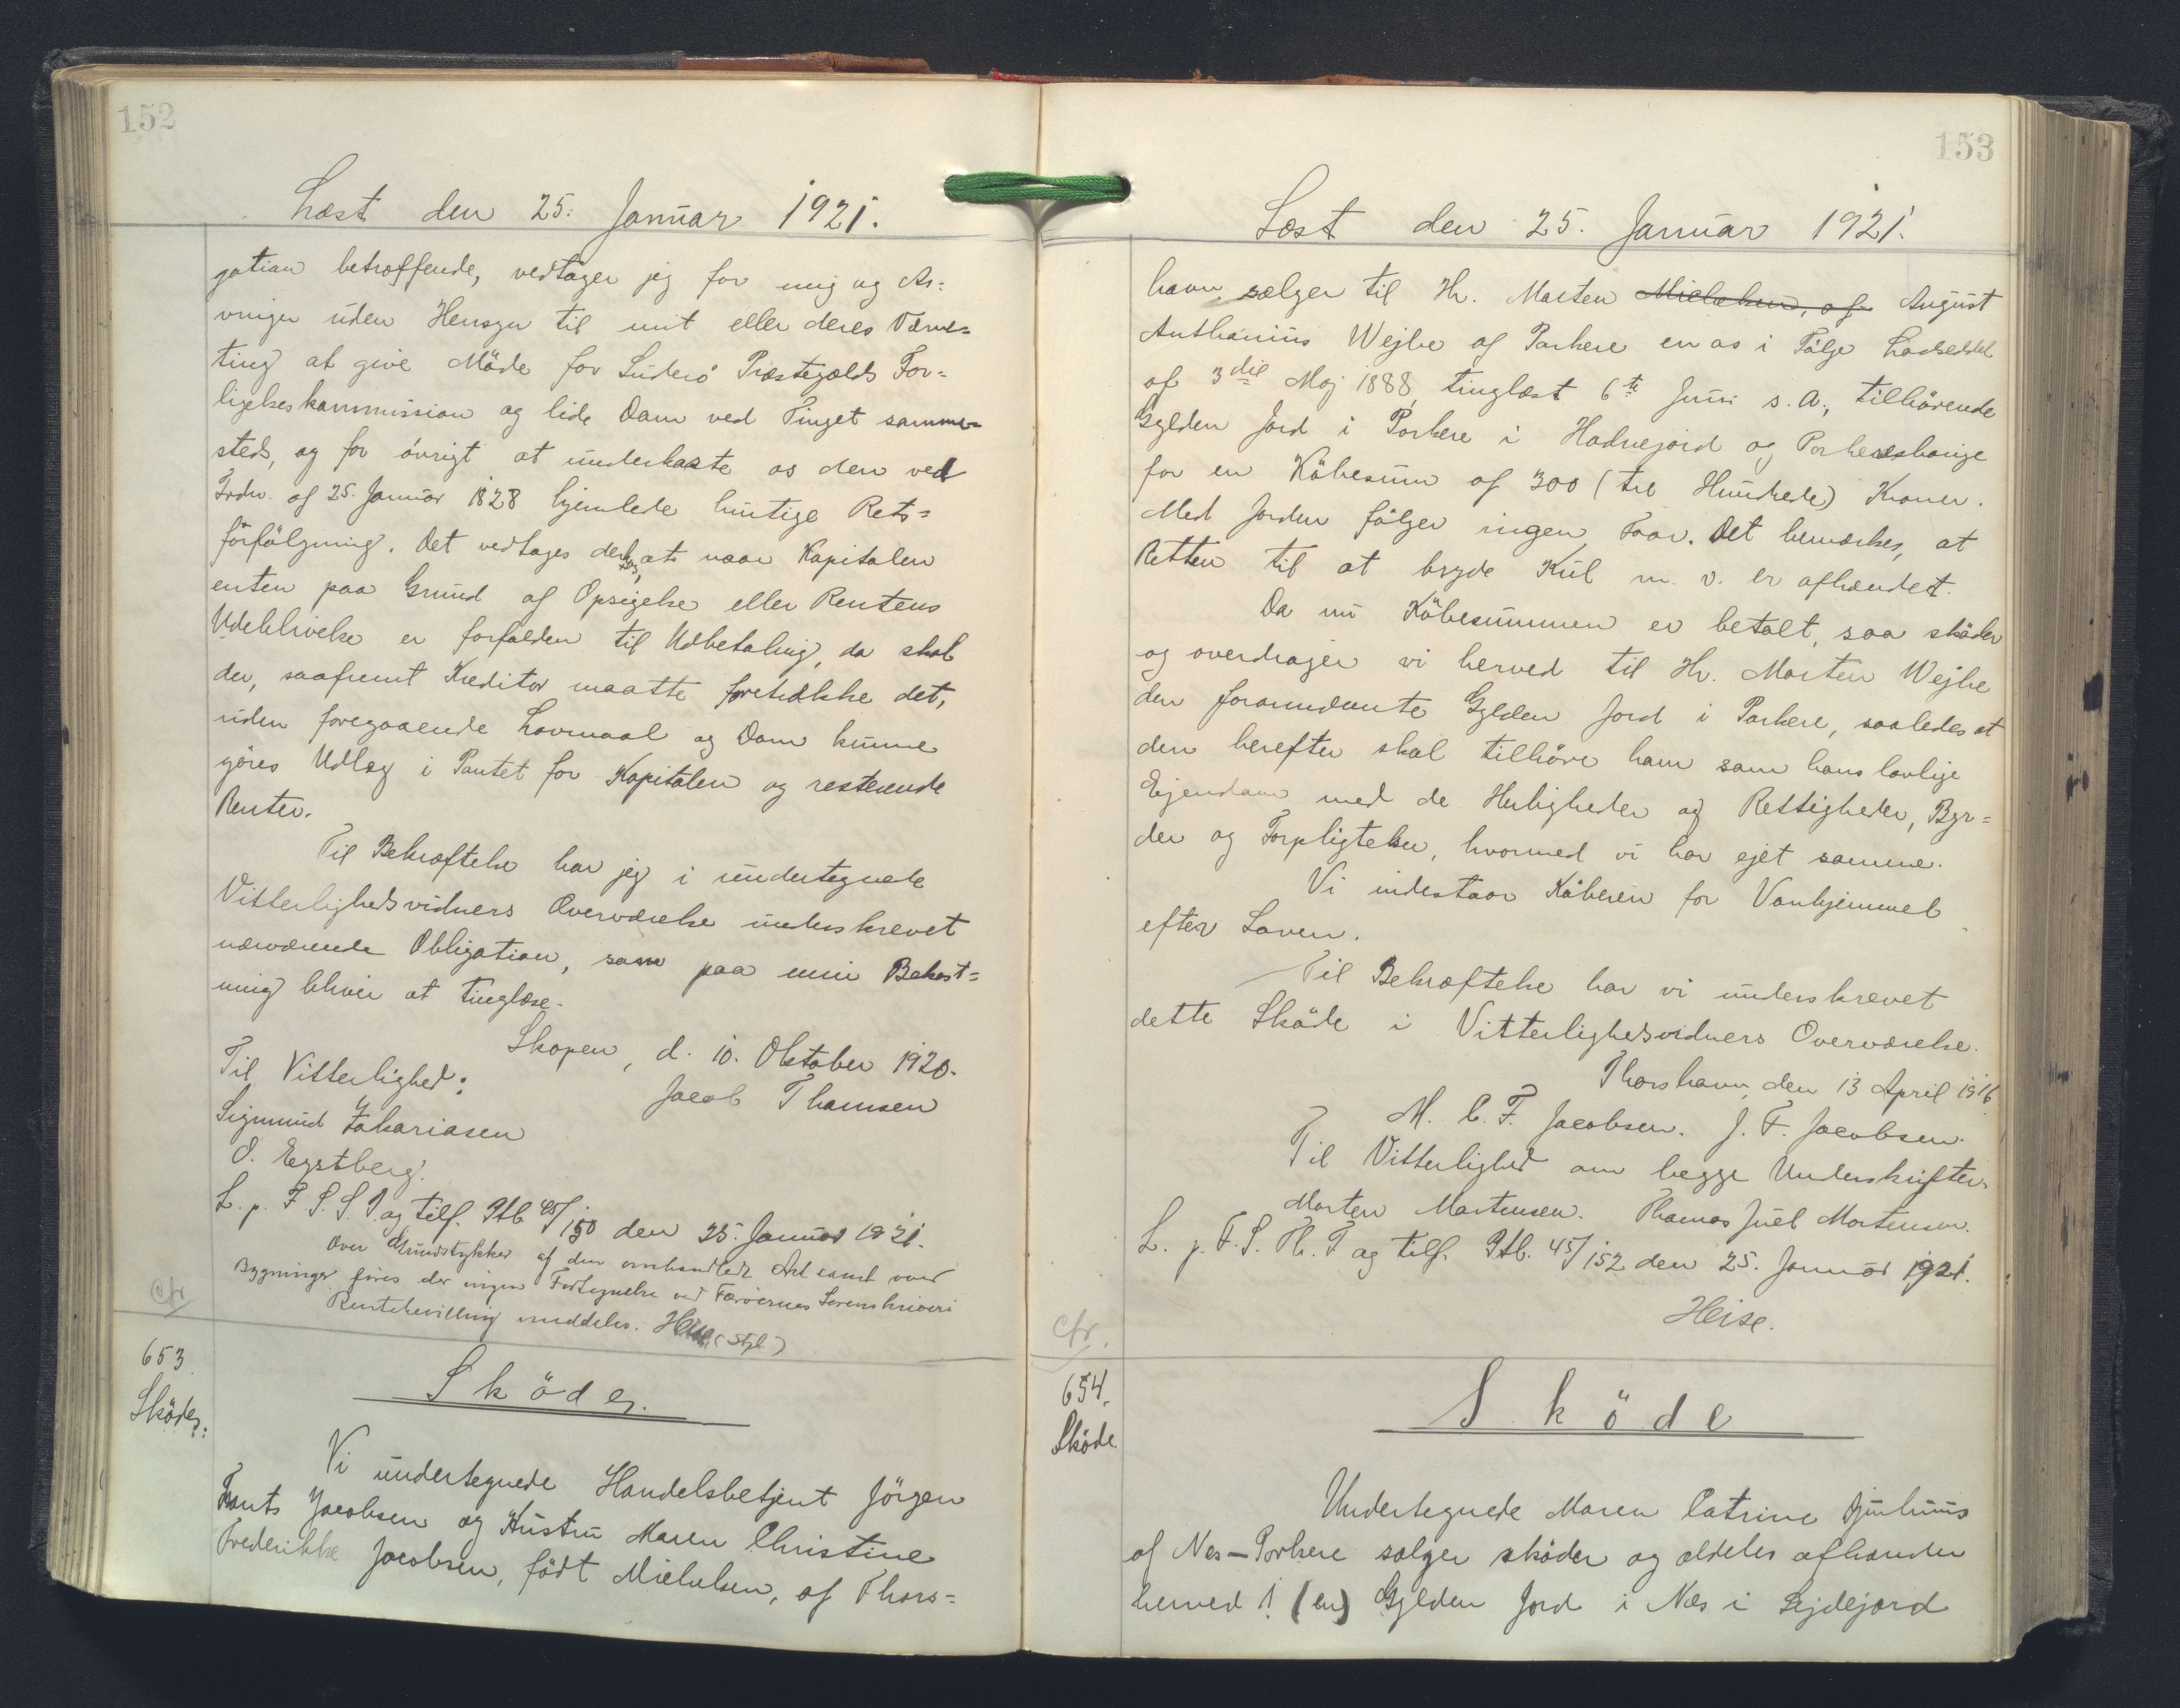 152
Læst den 25. Januar 1921.
gation betræffende, vedtager jeg for mig og Ar=
vinger uden Hensyn til mit eller deres Værne=
ting at give Möde for Suderö Præstegælds For=
ligelseskommission og lide Dom ved Tinget samme=
steds, og for övrigt at underkaste os den ved
Frdn. af 25. Januar 1828 hjemlede hurtige Rets=
forfölgning. Det vedtages derhos, at naar Kapitalen
enten paa Grund af Opsigelse eller Rentens
Udeblivelse er forfalden til Udbetaling, da skal
der, saafremt Kreditor maatte foretrække det,
uden foregaaende Lovmaal og Dom kunne
göres Udlæg i Pantet for Kapitalen og resterende
Renter.
Til Bekræftelse har jeg i undertegnede
Vitterlighedsvidners Overværelse underskrevet
nærværende Obligation, som paa min Bekost=
ning bliver at tinglæse.
Skopen, d. 10. Oktober 1920.
Til Vitterlighed: Jacob Thomsen
Sigmund Zakariasen
O. Eystberg.
L. p. F. S. S. T. og tilf. Ptb. 45/150 den 25. Januar 1921.
Over Grundstykker af den omhandlede Art samt over
Bygninger föres der ingen Fortegnelse ved Færöernes Sorenskriveri
Rentebevilling meddeles. Heise (Stpl.)
cfr
653
Sköde:
Sköde.
Vi undertegnede Handelsbetjent Jörgen
Frants Jacobsen og Hustru Maren Christine
Frederikke Jacobsen, födt Mickelsen, af Thors=
153
Læst den 25. Januar 1921.
havn sælger til Hr. Morten Mickelsen, af August
Anthonius Wejhe af Porkere en os i Fölge Lodseddel
af 3die Maj 1888, tinglæst 6te Juni s. A., tilhörende
Gylden Jord i Porkere i Hodnejord og Porkereshauge
for en Köbesum af 300 (tre Hundrede) Kroner.
Med Jorden fölger ingen Faar. Det bemærkes, at
Retten til at bryde Kul m. v. er afhændet.
Da nu Köbesummen er betalt, saa sköder
og overdrager vi herved til Hr. Morten Wejhe
den forannævnte Gylden Jord i Porkere, saaledes at
den herefter skal tilhöre ham som hans lovlige
Ejendom med de Herligheder og Rettigheder, Byr=
der og Forpligtelser, hvormed vi har ejet samme.
Vi indestaar Köberen for Vanhjemmel
efter Loven.
Til Bekræftelse har vi underskrevet
dette Sköde i Vitterlighedsvidners Overværelse.
Thorshavn, den 13 April 1916
M. C. F. Jacobsen. J. F. Jacobsen.
Til Vitterlighed om begge Underskrifter.
Morten Mortensen. Thomas Juel Mortensen.
L. p. F. S. Th. T og tilf. Ptb. 45/152 den 25. Januar 1921.
Heise.
cfr.
654.
Sköde
Sköde
Undertegnede Maren Catrine Djurhuus
af Nes-Porkere sælger sköder og aldeles afhænder
herved 1 (en) Gylden Jord i Nes i Lejdejord